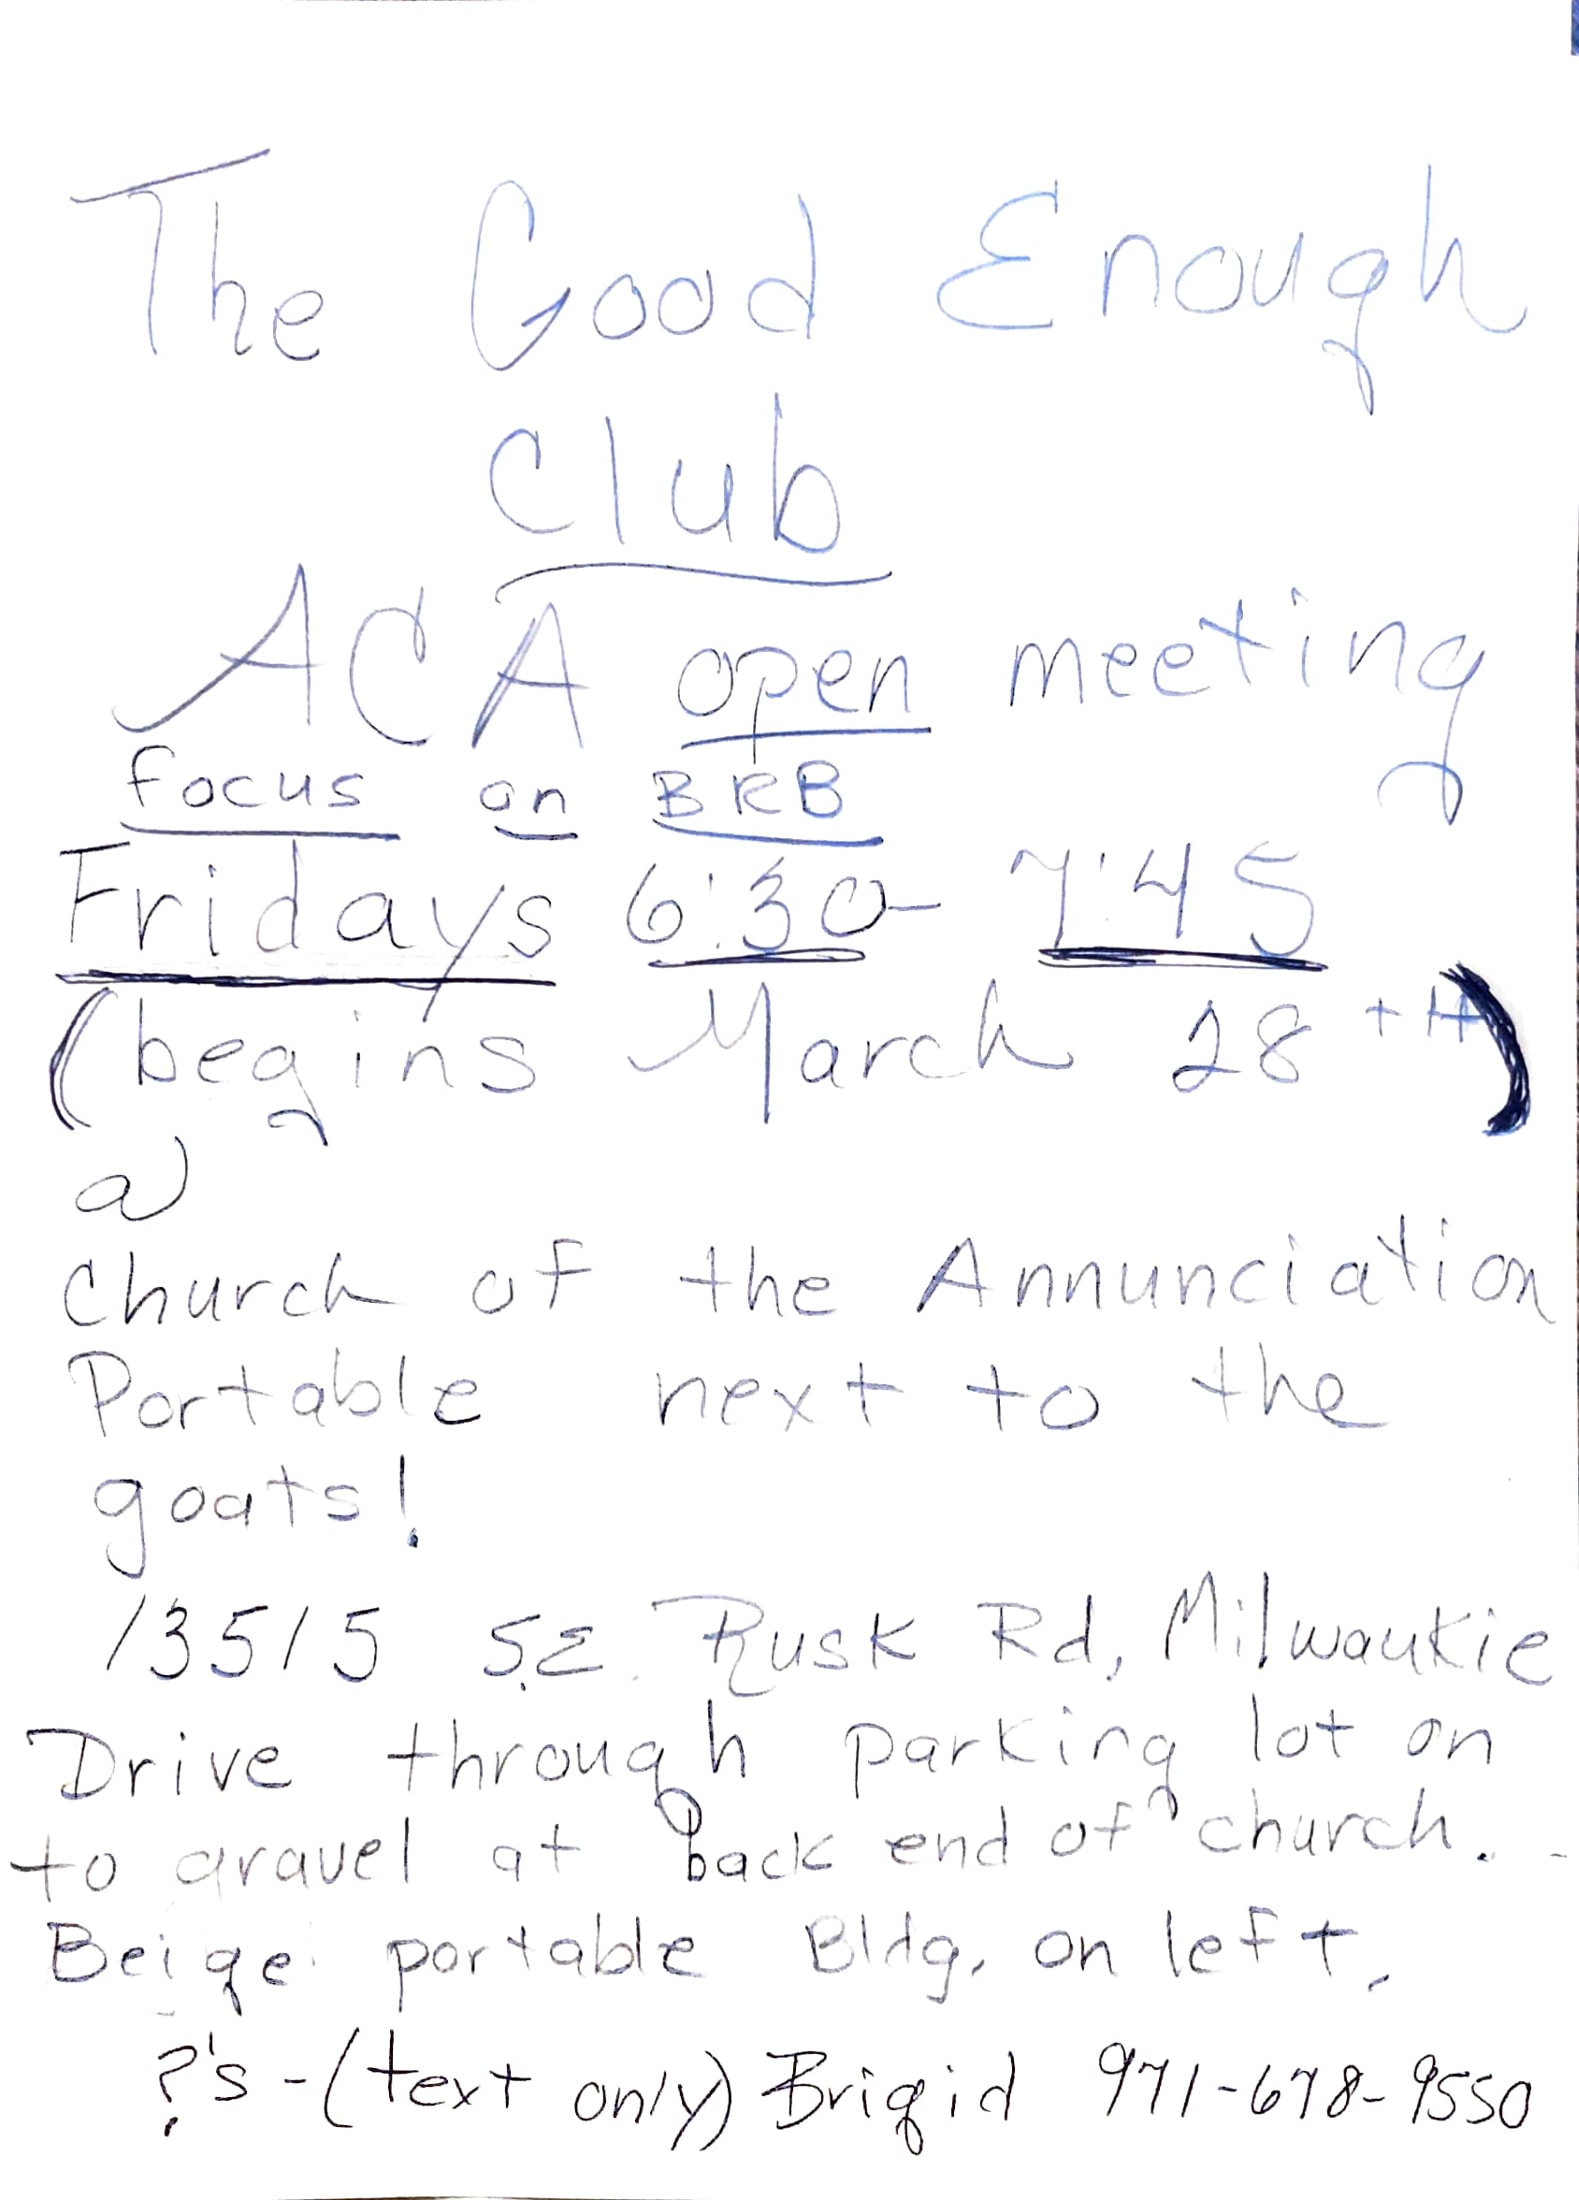 The Good Enough
Club
ACA open meeting
focus on BRB
Fridays 6:30- 7:45
(begins March 28th)
@
Church of the Annunciation
Portable next to the
goats!
13515 S.E. Rusk Rd, Milwaukie
Drive through parking lot on
to gravel at back end of church.
Beige portable Bldg. on left.
?'s - (text only) Brigid 971-678-9550